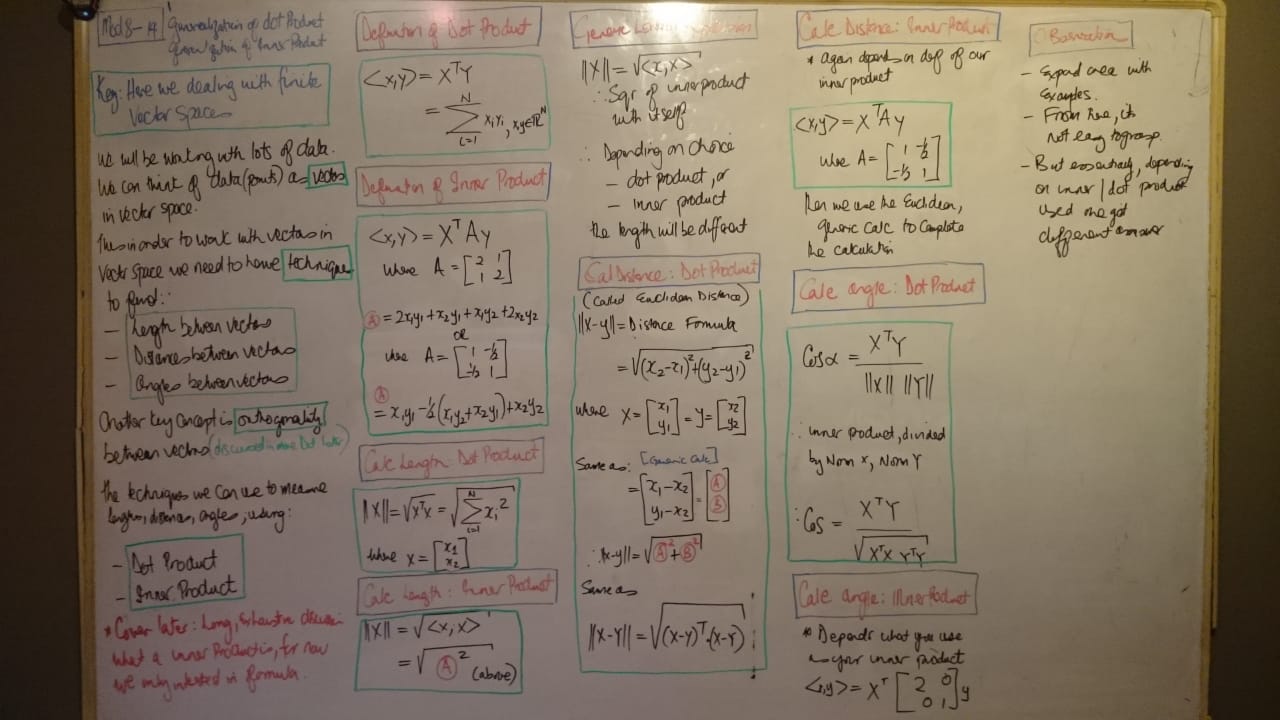 Mod 8 - 14
Generalization of dot Product
Generalization of Inner Product
Key: Here we dealing with finite
Vector Spaces
We will be working with lots of data.
We can think of data (points) as vectors
in vector space.
Thus in order to work with vectors in
Vector space we need to have techniques
to find:
- Length between vectors
- Distances between vectors
- Angles between vectors
Another key concept is orthogonality
between vectors (discussed in more Det later)
The techniques we can use to measure
lengths, distances, angles, using:
- Dot Product
- Inner Product
* Cover later: Long, Exhaustive discussion
what a inner Product is, for now
we only interested in formula.
Definition of Dot Product
<x,y> = XᵀY
= Σ_{i=1}^{N} xᵢyᵢ, x,y∈ℝᴺ
Definition of Inner Product
<x,y> = XᵀAy
where A = [2 1
1 2]
Ⓐ = 2x₁y₁ + x₂y₁ + x₁y₂ + 2x₂y₂
OR
where A = [1 -½
-½ 1]
Ⓐ
= x₁y₁ - ½(x₁y₂ + x₂y₁) + x₂y₂
Calc Length: Dot Product
||X|| = √XᵀX = √Σ_{i=1}^{N} xᵢ²
where X = [x₁
x₂]
Calc Length: Inner Product
||X|| = √<x,x>
= √Ⓐ² (above)
Generic
||X|| = √<x,x>
∴ Sqr of inner product
with itself
∴ Depending on choice
- dot product, or
- inner product
the length will be different
Cal Distance: Dot Product
(Called Euclidean Distance)
||x-y|| = Distance Formula
= √(x₂-x₁)²+(y₂-y₁)²
where X = [x₁
y₁] = y = [x₂
y₂]
Same as: [Generic Calc]
= [x₁-x₂
y₁-x₂] = [Ⓐ
Ⓑ]
∴ ||x-y|| = √Ⓐ²+Ⓑ²
Same as
||X-Y|| = √(X-Y)ᵀ.(X-Y)
Calc Distance: Inner Product
* Again depends on def of our
inner product
<x,y> = XᵀAy
where A = [1 -½
-½ 1]
Then we use the Euclidean,
generic calc to complete
the calculation
Calc angle: Dot Product
Cos α = XᵀY
||X|| ||Y||
∴ inner product, divided
by Norm X, Norm Y
∴ Cos = XᵀY
√XᵀX YᵀY
Calc angle: Inner Product
* Depends what you use
as your inner product
<,y> = Xᵀ [2 0
0 1] y
Observation
- Expand area with
Examples.
- From here, its
not easy to grasp.
- But essentially, depending
on inner/dot product
used one got
different answer